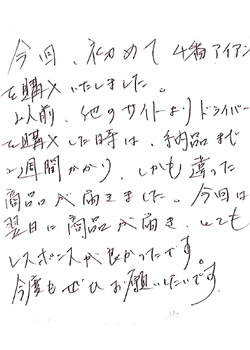 今回、初めて4番アイアン
を購入いたしました。
以前、他のサイトよりドライバー
を購入した時は、納品まで
2週間かかり、しかも違った
商品が届きました。今回は
翌日に商品が届き、とても
レスポンスが良かったです。
今度もぜひお願いしたいです。